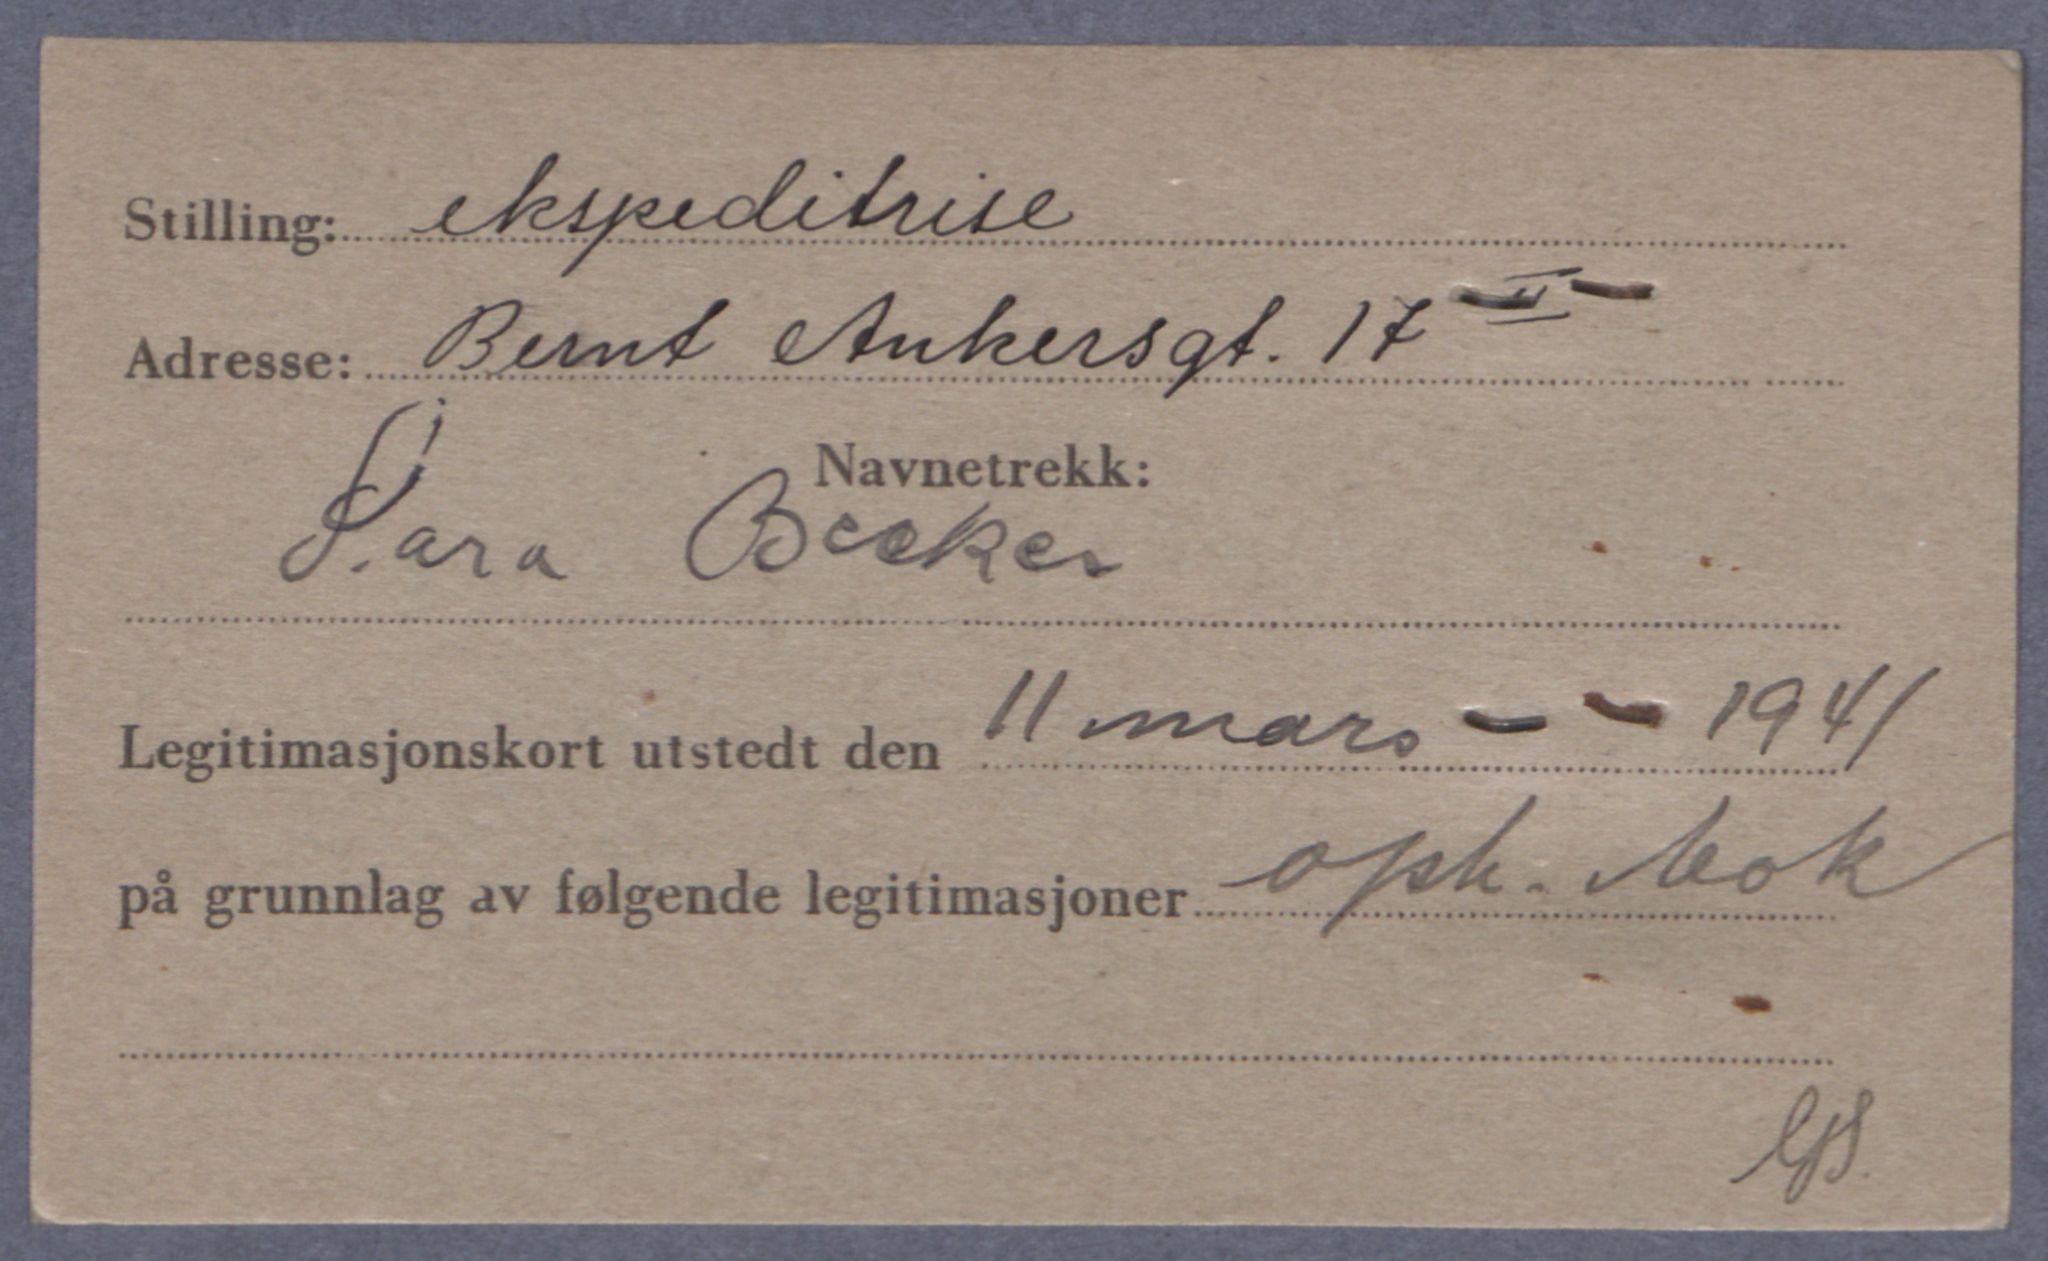 Stilling: ekspeditrise
Adresse: Bernt Ankersgt. 17 II
Navnetrekk:
Sara Becker
Legitimasjonskort utstedt den 11 mars 1941
på grunnlag av følgende legitimasjoner oph. bok